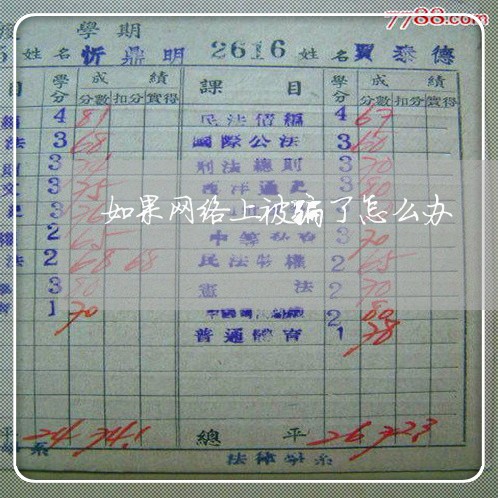 7788.com
學期
姓名 忻鼎明 2616 姓名 賈泰德
目 學分 成績 課目 學分 成績
分數 扣分 實得 分數 扣分 實得
4 81 民法債編 4 67
法 3 68 國際公法 3 60
3 刑法總則 3 70
3 75 西洋通史 3 80
如果网络上被骗了怎么办
2 65 3 70
法 2 68 68 民法物權 2 65
3 80 憲法 2 70
1 70 2 80
普通體育 1 78
平 24 74.1 總平 26 72.3
系 法律學系